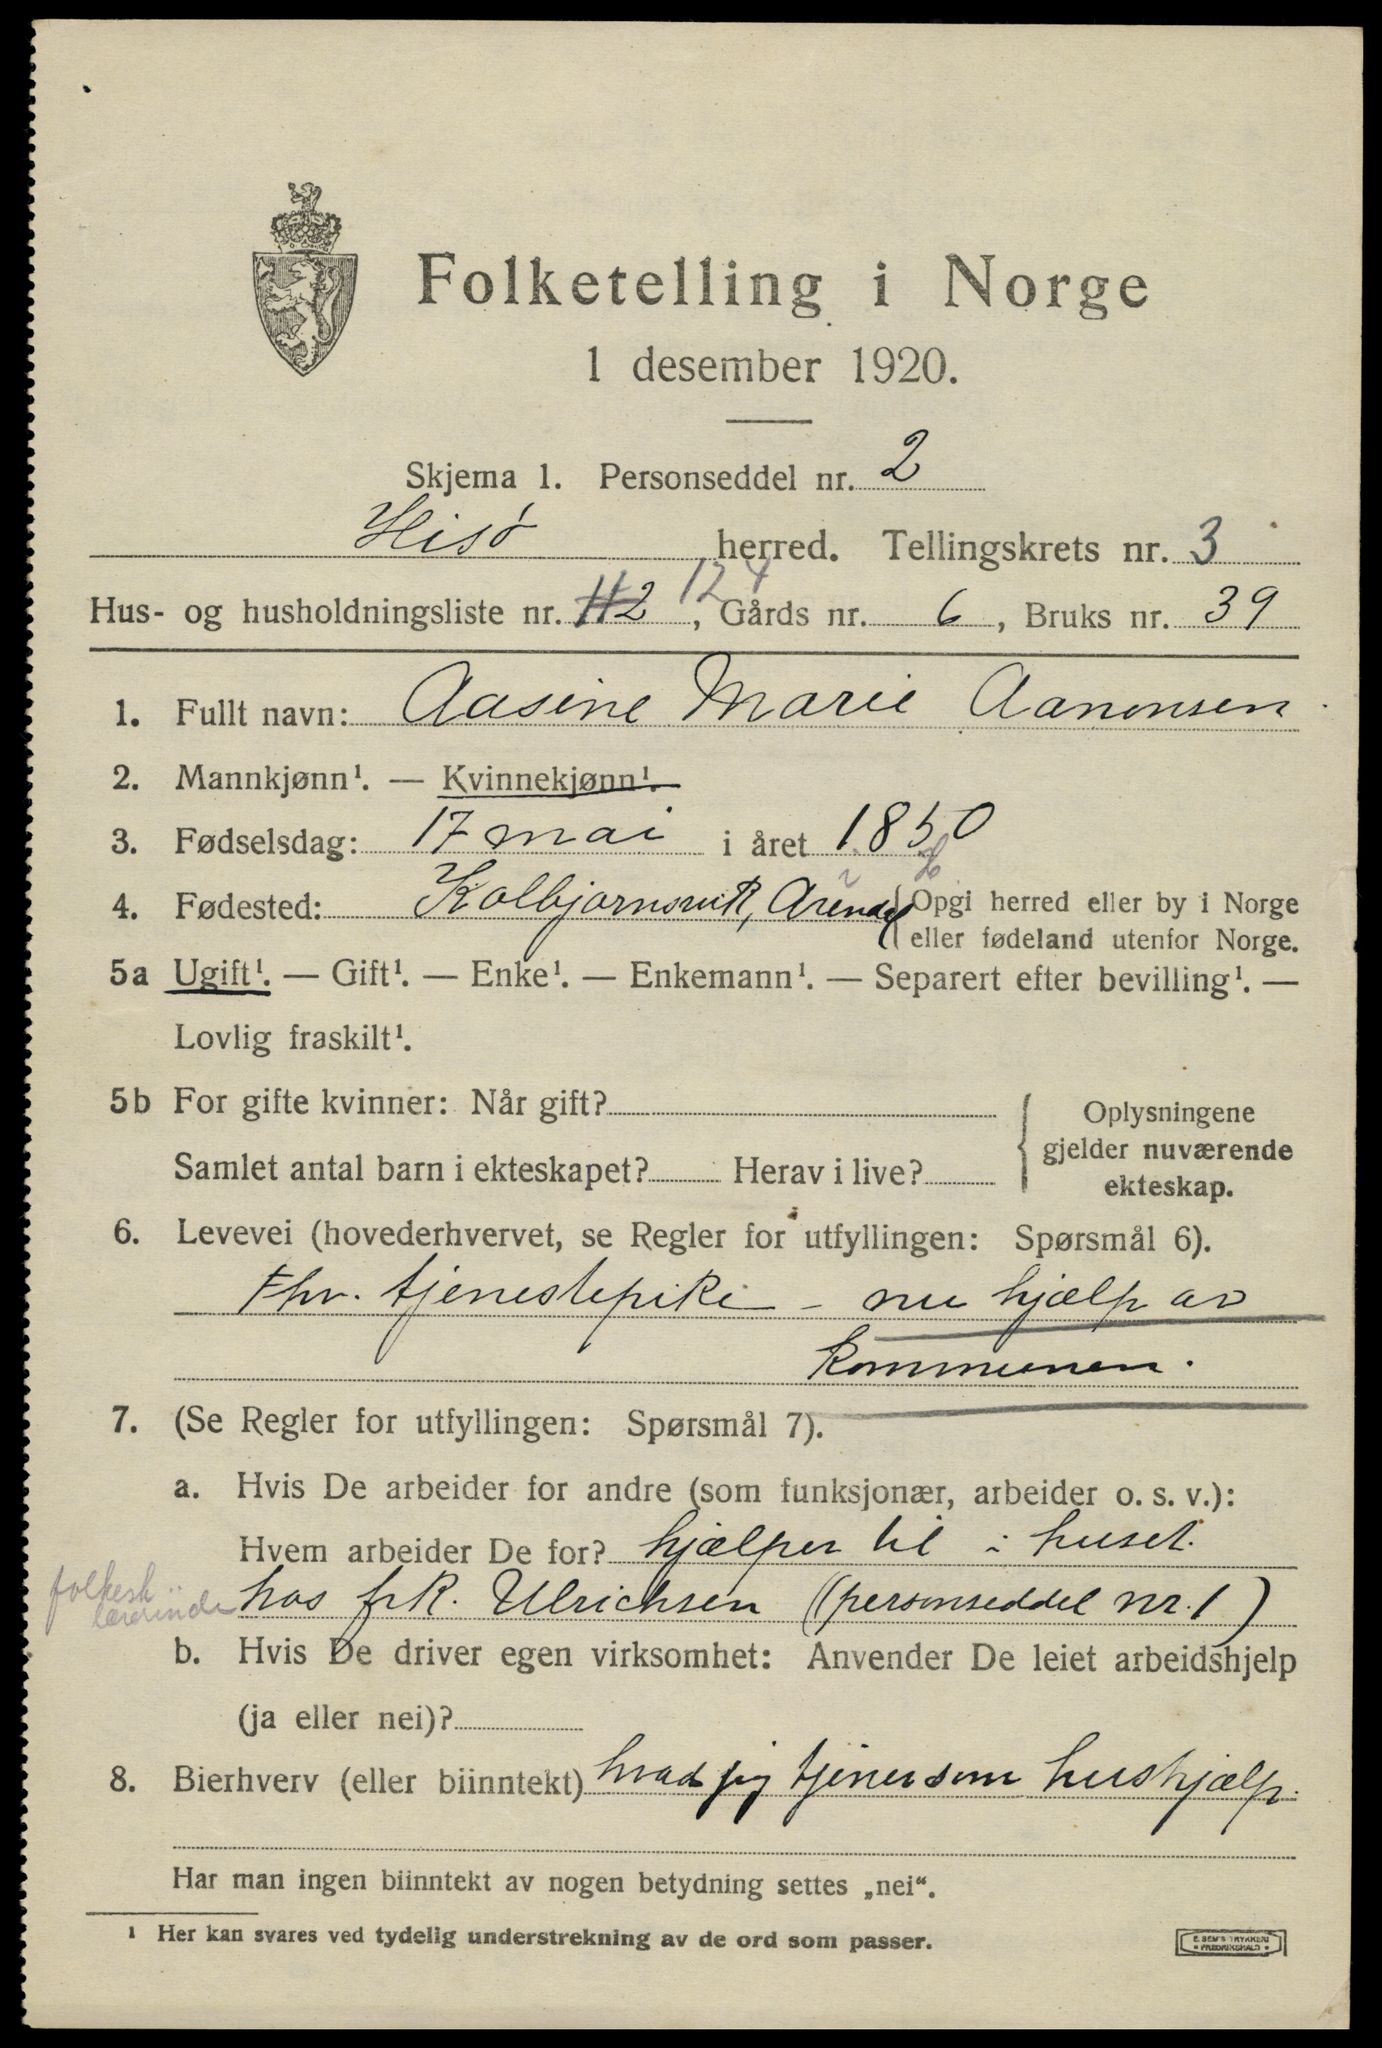 Folketelling i Norge
1 desember 1920.
Skjema 1. Personseddel nr. 2
Hisø herred. Tellingskrets nr. 3
124
Hus- og husholdningsliste nr. 112, Gårds nr. 6, Bruks nr. 39
1. Fullt navn: Aasine Marie Aanonsen
2. Mannkjønn¹. — Kvinnekjønn¹.
3. Fødselsdag: 17 mai i året 1850
4. Fødested: Kolbjørnsvik, Arendal { Opgi herred eller by i Norge
eller fødeland utenfor Norge.
5a Ugift¹. — Gift¹. — Enke¹. — Enkemann¹. — Separert efter bevilling¹. —
Lovlig fraskilt¹.
5b For gifte kvinner: Når gift?
Samlet antal barn i ekteskapet? Herav i live?
Oplysningene
gjelder nuværende
ekteskap.
6. Levevei (hovederhvervet, se Regler for utfyllingen: Spørsmål 6).
Fhv. tjenestepike – nu hjælp av
kommunen.
7. (Se Regler for utfyllingen: Spørsmål 7).
a. Hvis De arbeider for andre (som funksjonær, arbeider o. s. v.):
Hvem arbeider De for? hjælper til i huset.
folkesk
lærerinde
hos frk. Ulrichsen (personseddel nr. 1)
b. Hvis De driver egen virksomhet: Anvender De leiet arbeidshjelp
(ja eller nei)?
8. Bierhverv (eller biinntekt) hvad jeg tjener som hushjælp.
Har man ingen biinntekt av nogen betydning settes „nei“.
¹ Her kan svares ved tydelig understrekning av de ord som passer.
E. SEM'S TRYKKERI
FREDRIKSHALD